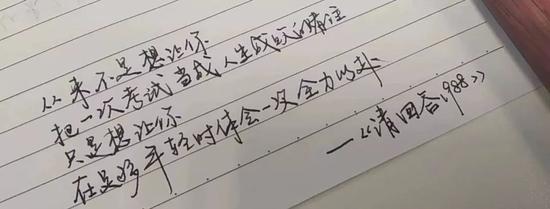 从来不是想让你
把一次考试当成人生成败的赌注
只是想让你
在足够年轻时体会一次全力以赴
—《请回答1988》